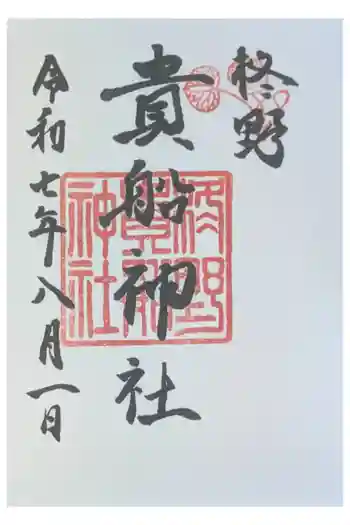 柊野
貴船神社
令和七年八月一日
柊野
貴船
神社